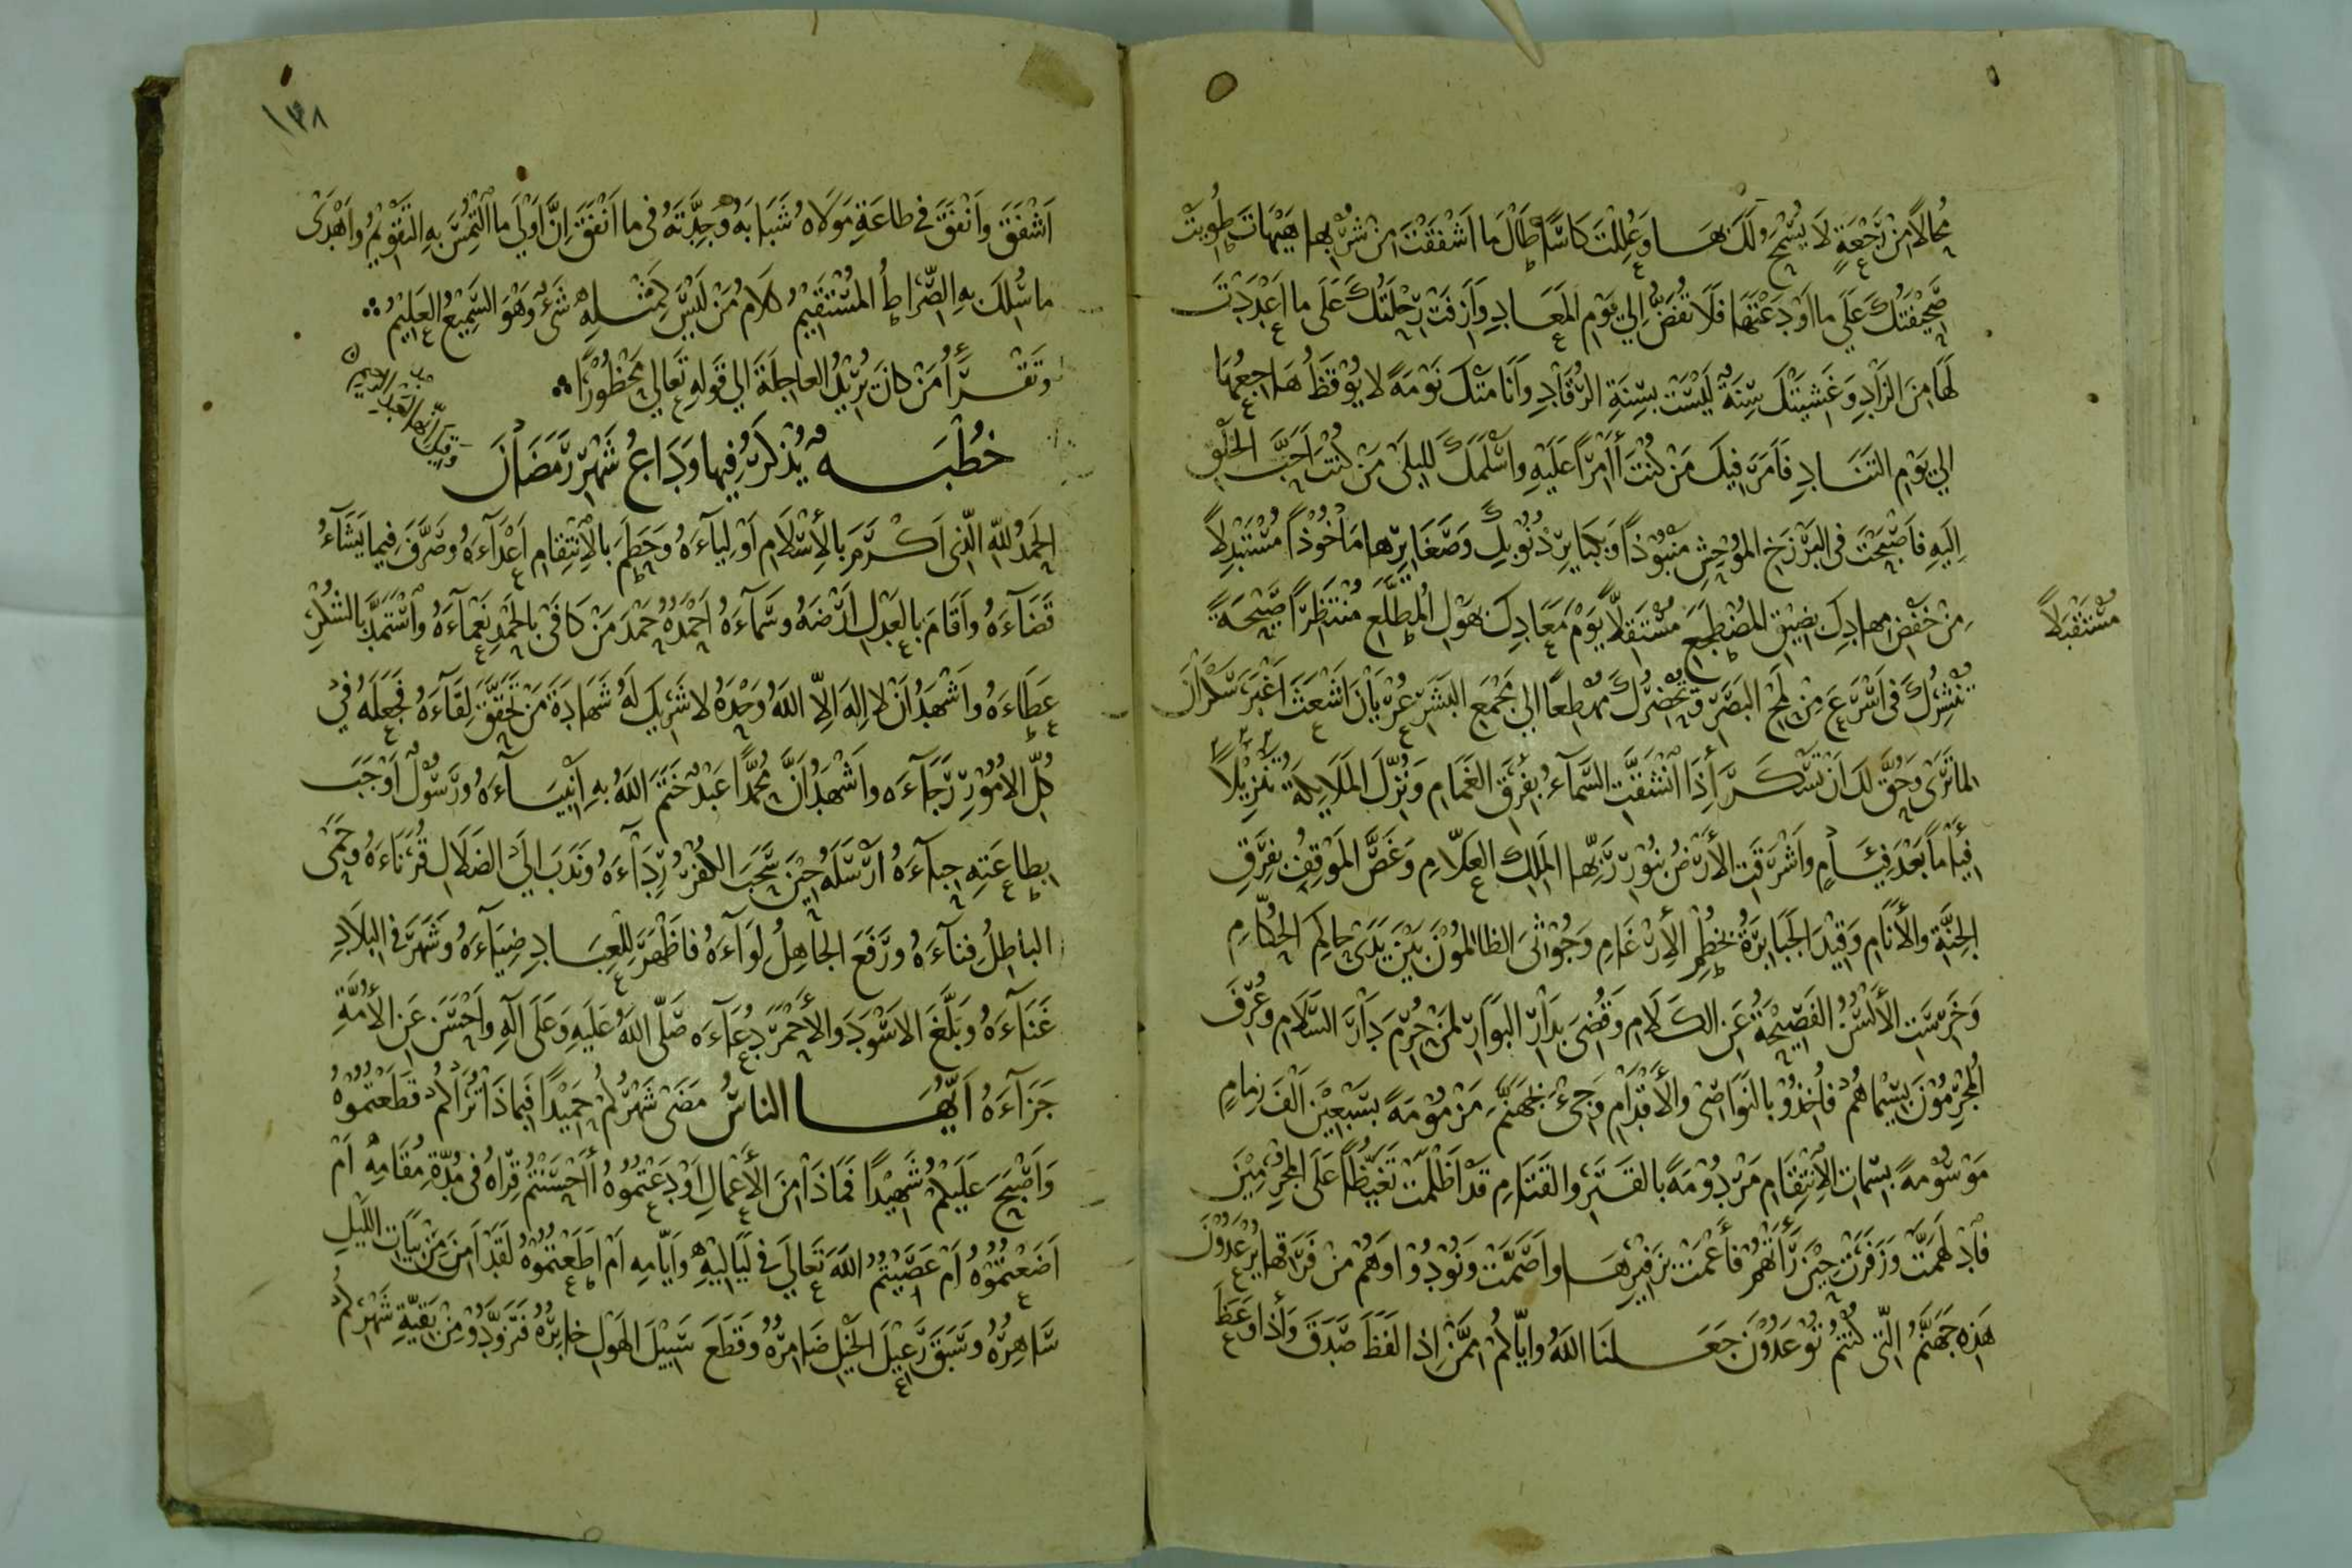 مُحالاً مِنْ رَجْعَةٍ لَا يُسْمَحُ لَكَ بِهَا وَعُلِلْتَ كَاسًا طَالَ مَا اَشْفَقْتَ مِنْ شُرْبِهَا هَيْهَاتَ طُوِيَتْ
صَحِيْفَتُكَ عَلَي مَا اَوْدَعْتَهَا فَلَا تُفَضُّ اِلي يَوْمِ المَعَادِ وَاَزِفَتْ رِحْلَتُكَ عَلَى ما اَعْدَدْتَ
لَهَا مِنَ الزَادِ وَغَشِيَتْكَ سِنَةٌ لَيْسَتْ بِسِنَةِ الرُقَادِ وَاَنَامَتْكَ نَوْمَةً لا يُوْقَظُ هَاجِعُهَا
اِلي يَوْمِ التَنَادِ فَاَمَرَّ فِيكَ مَنْ كُنْتَ اَمَرًّا عَلَيْهِ وَاَسْلَمَكَ لِلْبِلَى مَنْ كُنْتَ اَحَبَّ الخَلْقِ
اِلَيهِ فَاَصْبَحْتَ فى البَرْزَخِ المُوْحِشِ مَنْبُوْذًا وَبِكَبَايِرِ ذُنُوْبِكَ وَصَغَايِرِهَا مَاْخُوْذًا مُسْتَبْدِلاً
مِنْ خَفْضِ مِهادِكَ بِضِيْقِ المُضْطَجَعِ مُسْتَقِلاًّ يَوْمَ مَعَادِكَ بِهَوْلِ المُطَّلَعِ مُنْتَظِرًا صَيْحَةً
مُسْتَقْبِلاً
تَنْشُرُكَ فى اَسْرَعَ مِنْ لَمْحِ البَصَرِ وَتُحْضِرُكَ مُهْطِعًا اِلي مَجْمَعِ البَشَرِ عُرْيَانَ اَشْعَثَ اَغْبَرَ سَكْرَانَ
لِمَا تَرَى وَحُقَّ لَكَ اَنْ تَسْكَرَ إِذَا انْشَقَّتِ السَّمَآءُ بِفِرَقِ الغَمَامِ وَنُزِّلَ المَلَايِكَةُ تَنْزِيْلًا
فِيَامًا بَعْدَ فِيَامٍ وَاَشْرَقَتِ الأَرْضُ بِنُوْرِ رَبِّهَا المَلِكِ العَلَّامِ وَغَصَّ المَوْقِفُ بِفِرَقِ
الجِنَّةِ والأَنَامِ وَقِيْدَ الجَبَابِرَةُ بِخُطُمِ الأِرْغَامِ وَجُوْثِىَ الظالِمُوْنَ بَيْنَ يَدَىْ حاكِمِ الحُكَّامِ
وَخَرِسَتِ الأَلْسُنُ الفَصِيْحَةُ عَنِ الكَلَامِ وَقُضِىَ بِدَارِ البَوَارِ لِمَنْ حُرِمَ دَارَ السَّلَامِ وَعُرِّفَ
المُجْرِمُوْنَ بِسِيْمَاهُمْ فَاُخِذُوْ بِالنَوَاصِى والأَقْدَامِ وَجِىْءَ بِجَهَنَّمَ مَزْمُوْمَةً بِسَبْعِيْنَ اَلْفَ زِمَامٍ
مَوْسُوْمَةً بِسِمَاتِ الأِنْتِقَامِ مَرْدُوْمَةً بِالقَتَرِ والقَتَامِ قَدْ اَظْلَمَتْ تَغَيُّظًا عَلَى المُجْرِمِيْنَ
فَادْلَهَمَّتْ وَزَفَرَتْ حِيْنَ رَأَتْهُمْ فَأَعْمَتْ بِزَفِيْرِهَا واَصَمَّتْ وَنُوْدُوْا وَهُمْ مِنْ فَرَقِهَا يُرْعَدُوْنَ
هَذِهِ جَهَنَّمُ الَّتى كُنْتُمْ تُوْعَدُوْنَ جَعَلَنَا اللهُ وَاِيَّاكُمْ مِمَّنْ اِذا لَفَظَ صَدَقَ وَاِذَا وُعِظَ
١٣٨
اَشْفَقَ وَاَنْفَقَ فى طاعَةِ مَوْلَاهُ شَبَابَهُ وَجِدَّتَهُ فى ما اَنْفَقَ اِنَّ اَوْلَى ما الْتُمِسَ بِهِ التَقْوِيْمُ وَاَهْدَى
ما سُلِكَ بِهِ الصِّرَاطُ المُسْتَقِيْمُ كَلَامُ مَنْ لَيْسَ كَمِثْلِهِ شَىْءٌ وَهُوَ السَّمِيْعُ العَلِيْمُ
وتَقْرَأُ مَنْ كانَ يُرِيْدُ العاجِلَةَ اِلي قَولِهِ تَعَالي مَحْظُوْرًا
خُطْبَةٌ يُذْكَرُ فِيهَا وَدَاعُ شَهْرِ رَمَضَانَ
الحَمْدُ للهِ الَّذِى اَكْرَمَ بِالأِسْلَامِ اَوْلِيَآءَهُ وَحَطَمَ بِالأِنْتِقَامِ اَعْدَآءَهُ وصَرَّفَ فِيمَا يَشَآءُ
قَضَآءَهُ وَاَقَامَ بِالعَدْلِ اَرْضَهُ وسَمَآءَهُ اَحْمَدُهُ حَمْدَ مَنْ كَافَى بِالحَمْدِ نَعْمَآءَهُ واسْتَمَدَّ بِالشُكْرِ
عَطَآءَهُ واَشْهَدُ اَنْ لا اِلهَ اِلَّا اللهُ وَحْدَهُ لا شَرِيْكَ لَهُ شَهَادَةَ مَنْ تَحَقَّقَ لِقَآءَهُ فَجَعَلَهُ فِى
كُلِّ الأُمُوْرِ رَجَآءَه واَشْهَدُ اَنَّ مُحَمَّدًا عَبْدٌ خَتَمَ اللهُ بِهِ اَنْبِيَآءَهُ وَرَسُوْلٌ اَوْجَبَ
بِطاعَتِهِ حِبَآءَهُ اَرْسَلَهُ حِيْنَ سَحَبَ الكُفْرُ رِدَآءَهُ وَنَدَبَ اِلَى الضَلَالِ قُرَنَآءَهُ وَحَمَى
البَاطِلُ فِنَآءَهُ ورَفَعَ الجَاهِلُ لِوَآءَهُ فَاَظْهَرَ لِلْعِبَادِ ضِيَآءَهُ وَشَهَرَ فى البِلَادِ
غَنَآءَهُ وَبَلَّغَ الاَسْوَدَ والأَحْمَرَ دُعَآءَه صَلَّى اللهُ عَلَيْهِ وَعَلَى آلِهِ وَاَحْسَنَ عَنِ الأُمَّةِ
جَزَآءَهُ اَيُّهَا الناسُ مَضَى شَهْرُكُمْ حَمِيْدًا فَبِمَاذَا تُرَاكُمْ قَطَعْتُمُوْهُ
وَاَصْبَحَ عَلَيْكُمْ شَهِيْدًا فَمَاذَا مِنَ الأَعْمَالِ اَوْدَعْتُمُوْهُ أَاَحْسَنْتُمْ قِرَاهُ فى مُدَّةِ مُقَامِهِ اَمْ
اَضَعْتُمُوْهُ اَمْ عَصَيْتُمُ اللهَ تَعَالَي فى لَيَالِيْهِ وَاَيَّامِهِ اَمْ اَطَعْتُمُوْهُ لَقَدْ اَمِنَ مِنْ بَيَاتِ اللَّيلِ
سَاهِرُهُ وَسَبَقَ رَعِيْلَ الخَيْلِ ضَامِرُهُ وَقَطَعَ سَبِيْلَ الهَوْلِ خابِرُهُ فَتَزَوَّدُوْ مِنْ بَقِيَّةِ شَهْرِكُمْ